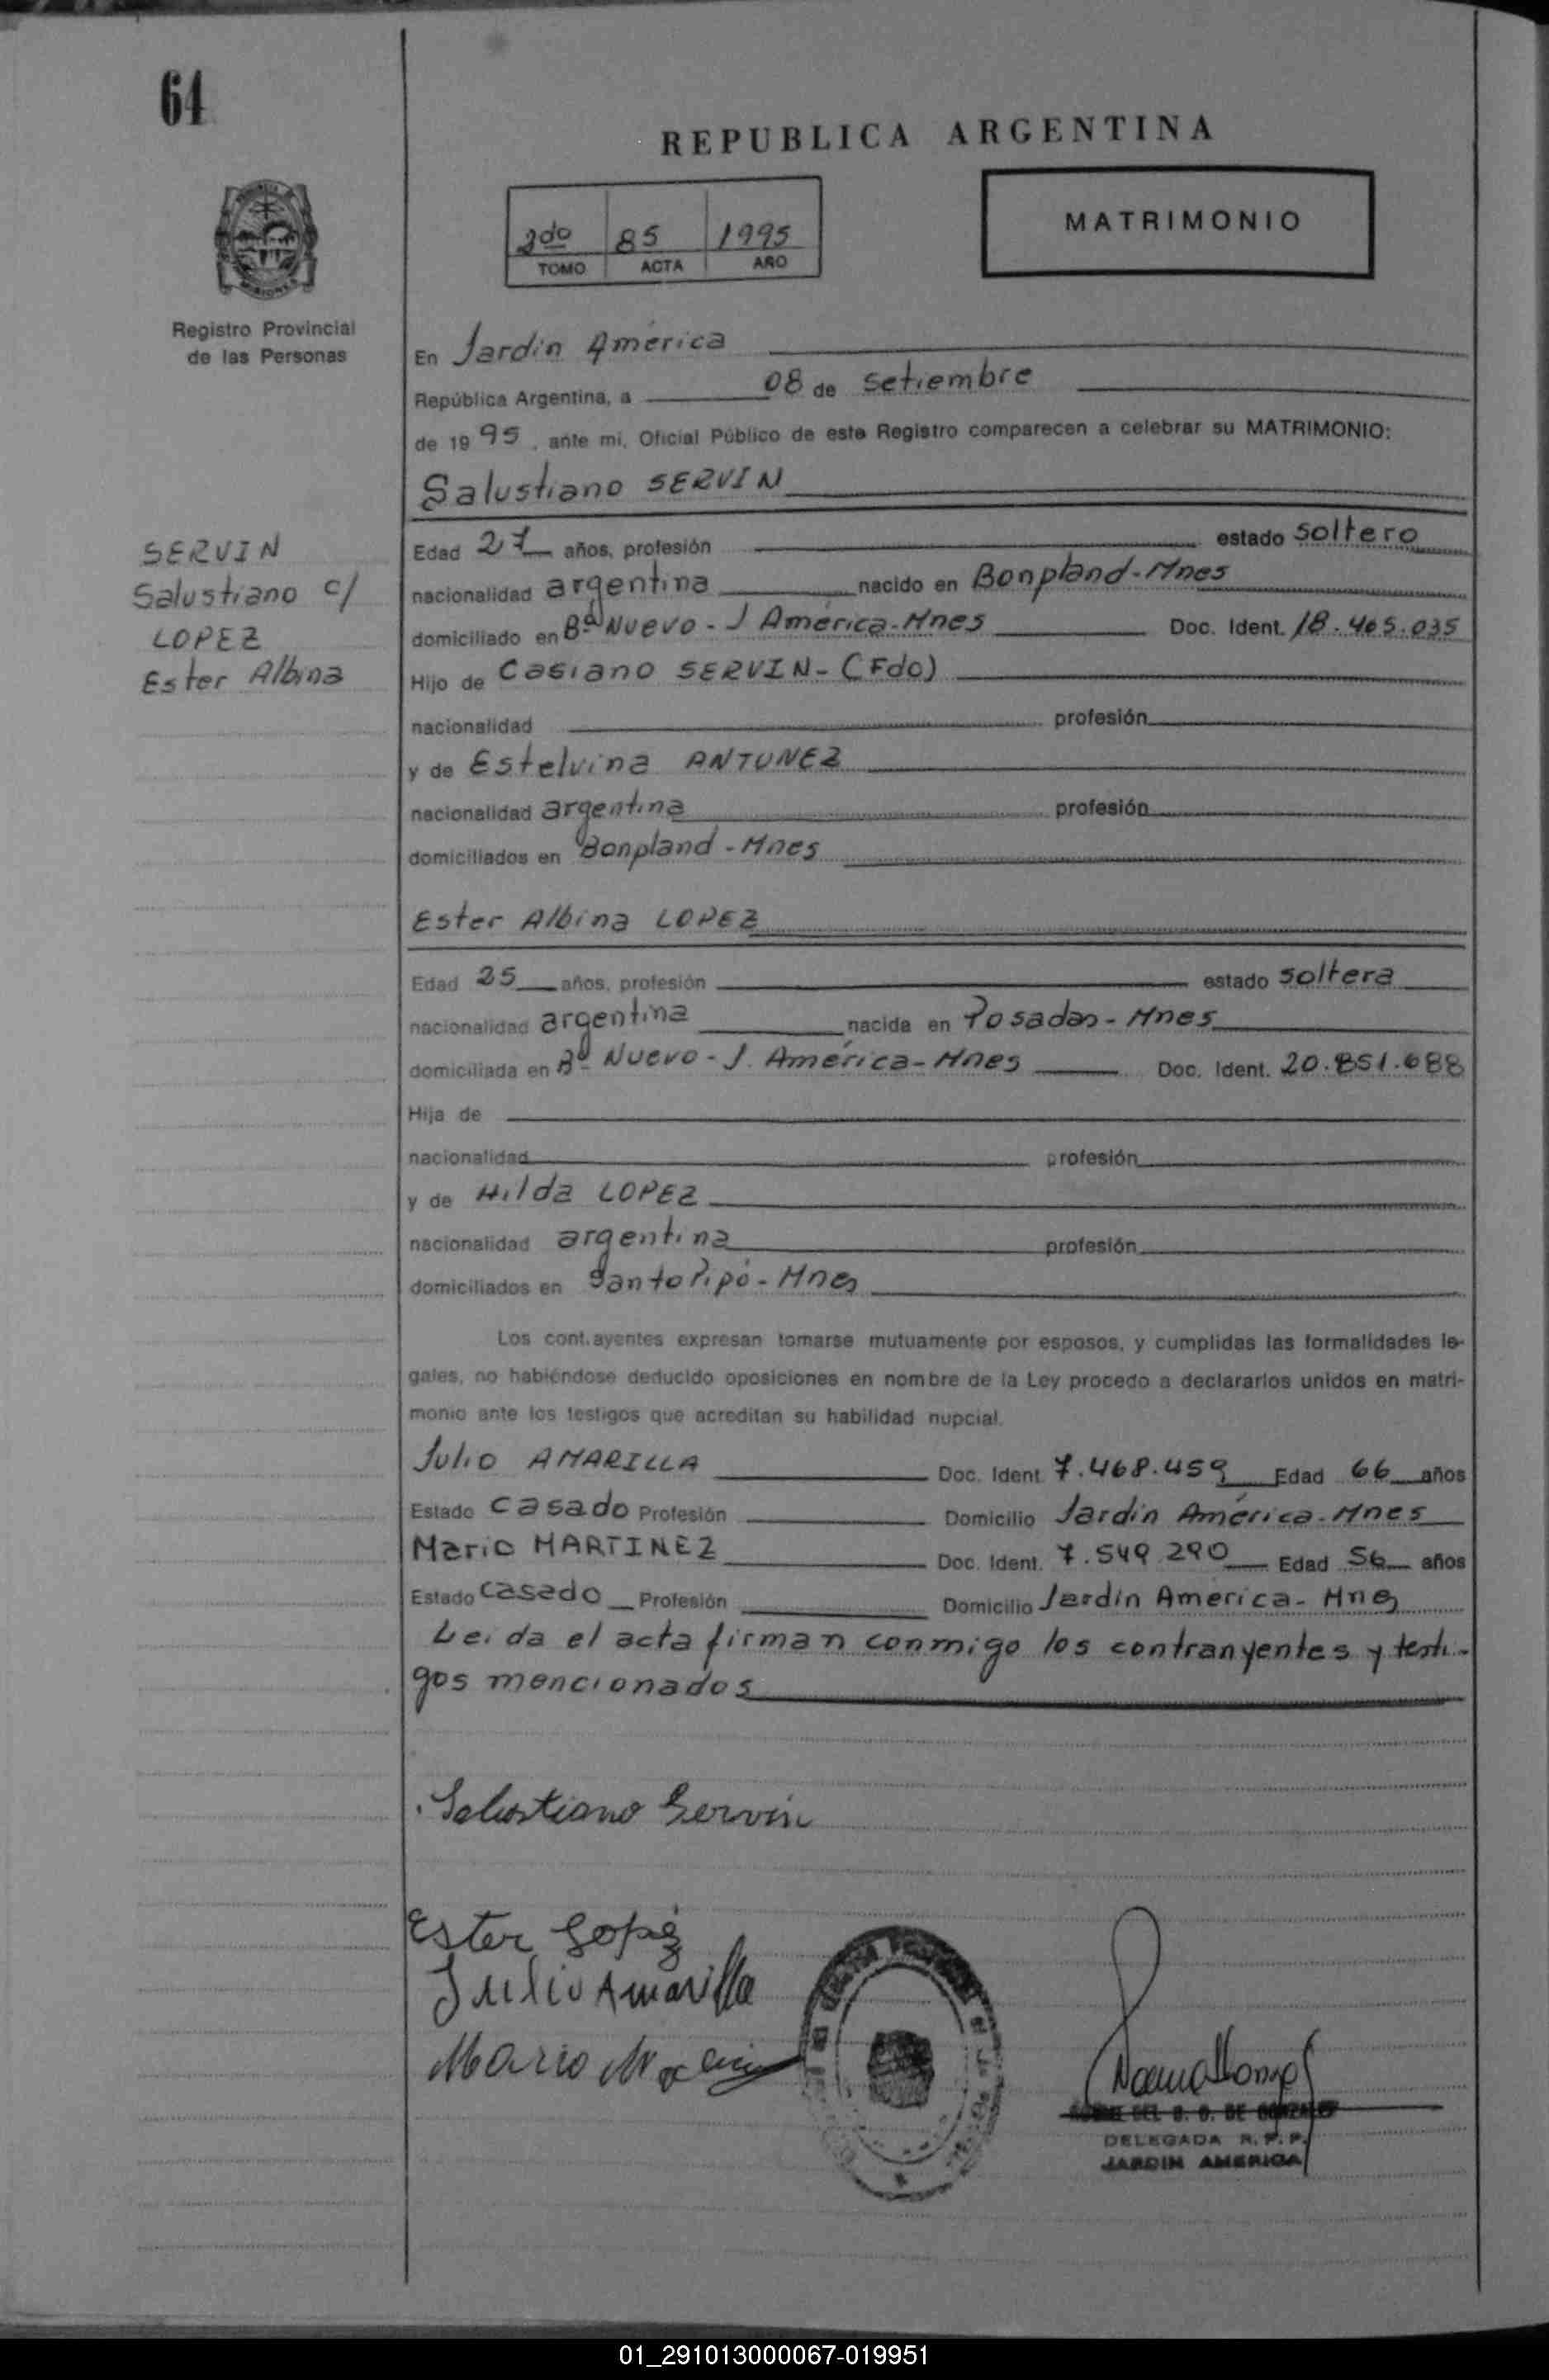 64
REPUBLICA ARGENTINA
2do 85 1995
TOMO ACTA AÑO
MATRIMONIO
Registro Provincial
de las Personas
En Jardín América
República Argentina, a 08 de setiembre
de 1995, ante mi, Oficial Público de este Registro comparecen a celebrar su MATRIMONIO:
Salustiano SERVIN
SERVIN
Salustiano c/
LOPEZ
Ester Albina
Edad 27 años, profesión estado soltero
nacionalidad argentina nacido en Bonpland-Mnes
domiciliado en Bº Nuevo - J América-Mnes Doc. Ident. 18.465.035
Hijo de Casiano SERVIN - (Fdo)
nacionalidad profesión
y de Estelvina ANTUNEZ
nacionalidad argentina profesión
domiciliados en Bonpland - Mnes
Ester Albina LOPEZ
Edad 25 años, profesión estado soltera
nacionalidad argentina nacida en Posadas - Mnes
domiciliada en Bº Nuevo - J. América-Mnes Doc. Ident. 20.851.688
Hija de
nacionalidad profesión
y de Hilda LOPEZ
nacionalidad argentina profesión
domiciliados en Santo Pipó - Mnes
Los contrayentes expresan tomarse mutuamente por esposos, y cumplidas las formalidades le-
gales, no habiéndose deducido oposiciones en nombre de la Ley procedo a declararlos unidos en matri-
monio ante los testigos que acreditan su habilidad nupcial.
Julio AMARILLA Doc. Ident 7.468.459 Edad 66 años
Estado Casado Profesión Domicilio Jardín América-Mnes
Mario MARTINEZ Doc. Ident. 7.549.290 Edad 56 años
Estado Casado Profesión Domicilio Jardín América - Mnes
Leida el acta firman conmigo los contranyentes y testi-
gos mencionados
Salustiano Servin
Ester Lopez
Julio Amarilla
Mario
DEL DE GONZALEZ
DELEGADA R.P.P.
JARDIN AMERICA
01_291013000067-019951